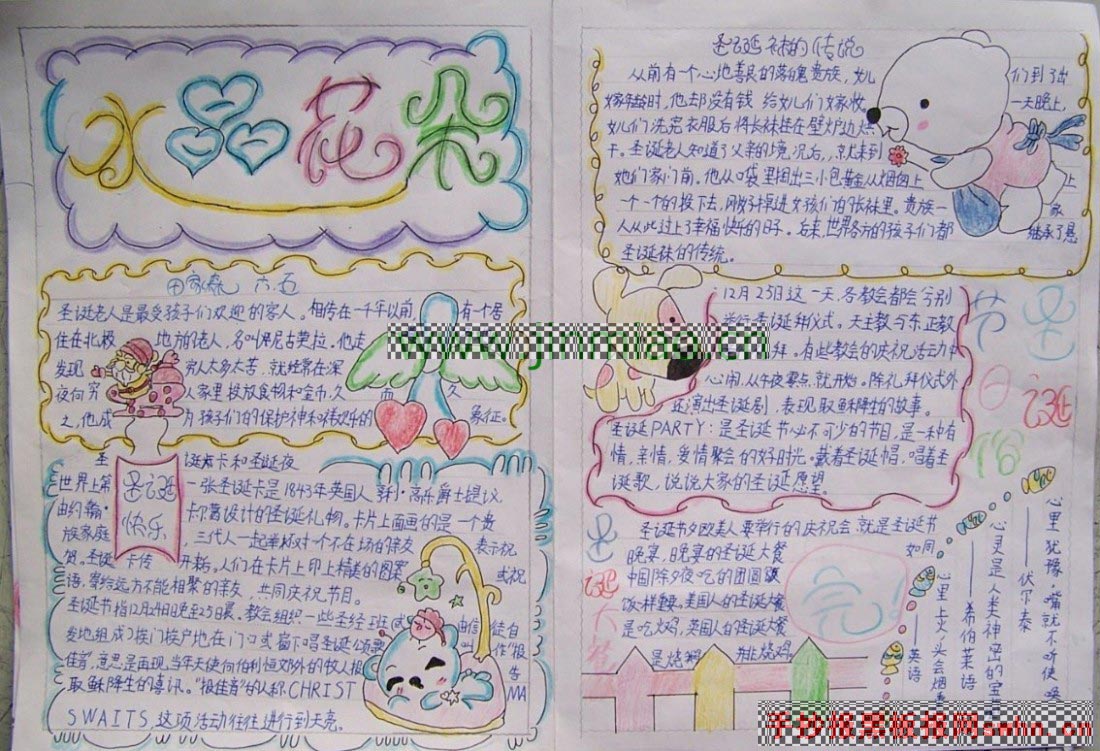 水晶花朵
圣诞老人是最受孩子们欢迎的客人。相传在一千年前, 有一个居
住在北极 地方的老人,名叫 尼古莱拉。他走
发现 穷人大多太苦,就经常在深
夜向穷 人家里投放食物和金币,久 而 久
之,他成 为孩子们的保护神和 欢乐的 象征。
圣 诞贺卡和圣诞夜
世界上第 一张圣诞卡是1843年英国人 利·高乐爵士提议,
由约翰· 卡尔葛设计的圣诞礼物。卡片上面画的是一个贵
族家庭 三代人一起举杯对一个不在场的亲友 表示祝
贺。圣诞 卡传 开始。人们在卡片上印上精美的图案 或祝
语,寄给远方不能相聚的亲友,共同庆祝节目。
圣诞节指12月24日晚至25日晨。教会组织一些圣经班 由信 徒自
发地组成 挨门挨户地在门口或窗下唱圣诞颂歌 叫 作"报
佳音",意思是再现当年天使向伯利恒郊外的牧人报 告
耶稣降生的喜讯。"报佳音"的人称CHRIST MA
SWAITS,这项活动往往进行到天亮。
圣诞
快乐
圣诞袜的传说
从前有一个心地善良的落魄贵族,女儿 们到了出
嫁年龄时,他却没有钱 给女儿们嫁妆, 一天晚上,
女儿们洗完衣服后将长袜挂在壁炉边烘
干。圣诞老人知道了父亲的境况后,就来到
她们家门前。他从口袋里掏出三小包黄金从烟囱上
一个一个的投下去,刚好掉进女孩们的长袜里。贵族一 家
人从此过上了幸福快乐的日子。后来,世界各方的孩子们都 继承了悬
圣诞袜的传统。
12月25日这一天,各教会都会分别
举行圣诞拜仪式。天主教与东正教
拜。有些教会的庆祝活动中
心闹,从午夜零点就开始。除礼拜仪式外
还演出圣诞剧,表现耶稣降生的故事。
圣诞PARTY:是圣诞节必不可少的节目,是一种有
情,亲情,爱情聚会的好时光。戴着圣诞帽,唱着圣
诞歌,说说大家的圣诞愿望。
圣诞
圣诞大餐
圣诞节夕欧美人要举行的庆祝会就是圣诞节
晚宴,晚宴的圣诞大餐 如同
中国除夕夜吃的团圆饭
饭一样重要。美国人的圣诞大餐
是吃火鸡,英国人的圣诞大餐
是烧鹅 非烧鸡
完!
心里犹豫,嘴就不听使唤
——伏尔泰
心灵是人类神密的宝
——希伯莱语
心里上火,头会烟
——英语
www.jxnmiao.cn
手抄报黑板报网swhn.cn